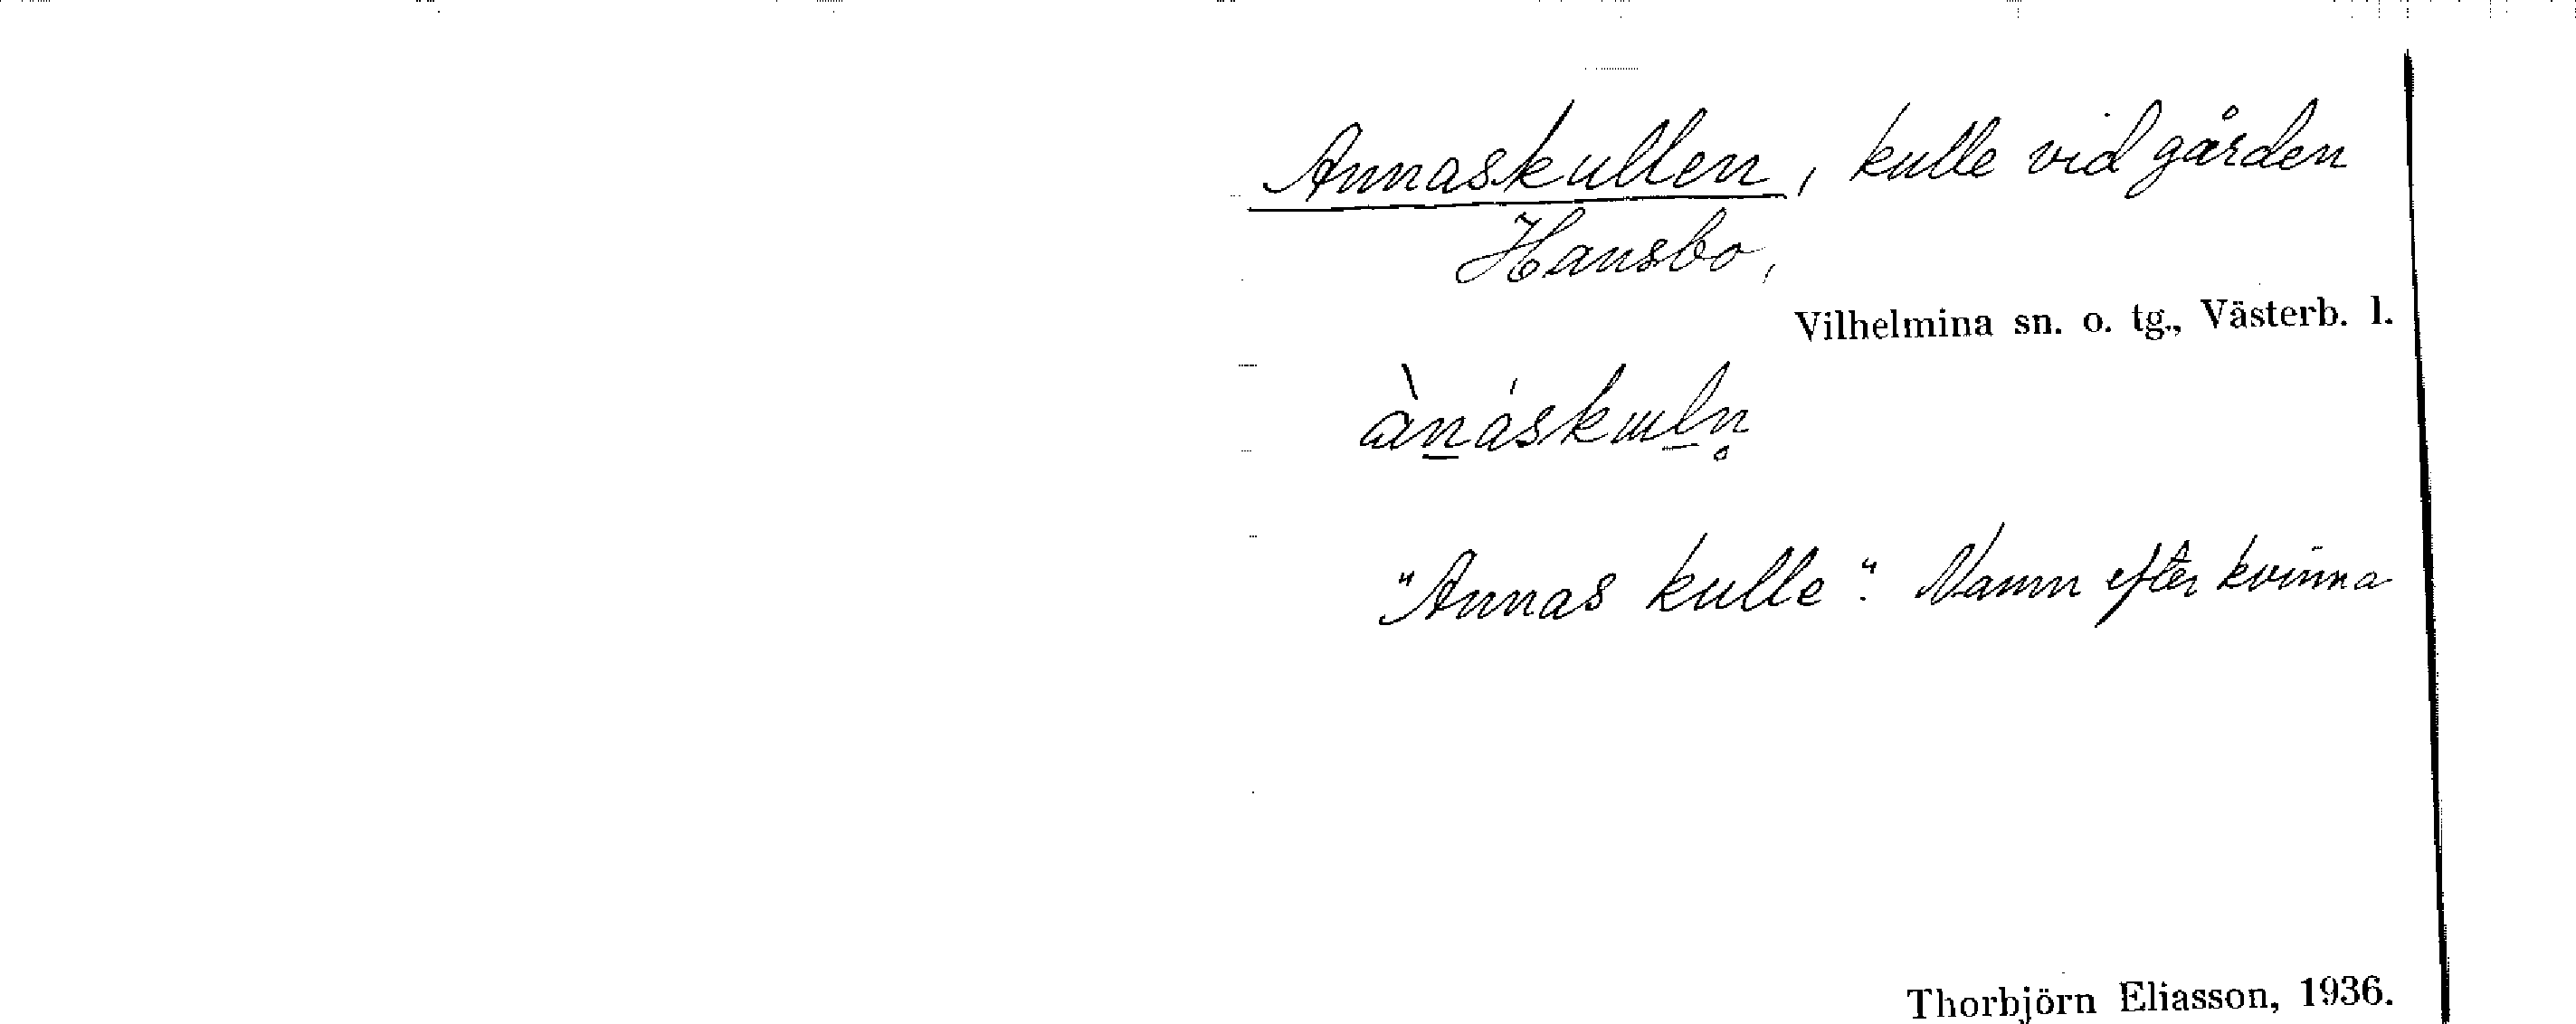 Annaskullen, kulle vid gården
Hansbo,
Vilhelmina sn. o. tg., Västerb. l.
"Annas kulle". Namn efter kvinna
Thorbjörn Eliasson, 1936.